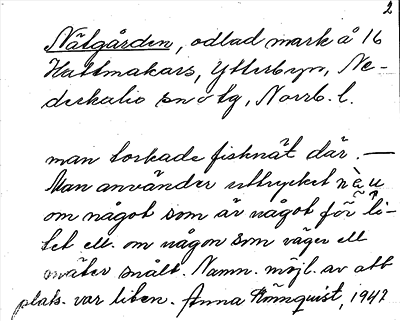 2
Nätgården, odlad mark å 16
Hattmakars, Ytterbyn, Ne-
derkalix sn o tg, Norrb. l.
man torkade fisknät där. —
Man använder uttrycket
om något som är något för li-
tet ell. om någon som väger ell
mäter snålt. Namn. möjl. av att
plats. var liten. Anna Rönnquist, 1947